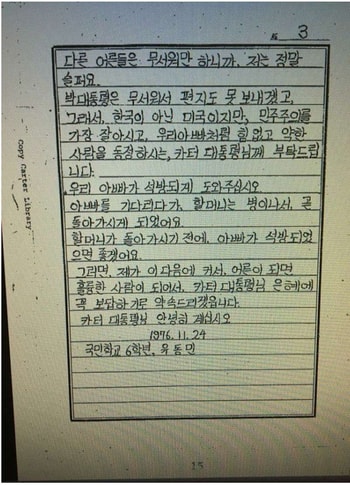 No 3
다른 어른들은 무서워만 하니까, 저는 정말
슬퍼요.
박대통령은 무서워서 편지도 못 보내겠고,
그래서, 한국이 아닌 미국이지만, 민주주의를
가장 잘아시고, 우리아빠처럼 힘없고 약한
사람을 동정하시는, 카터 대통령님께 부탁드립
니다.
우리 아빠가 석방되게 도와주십시오
아빠를 기다리다가, 할머니는 병이나서, 곧
돌아가시게 되었어요
할머니가 돌아가시기 전에, 아빠가 석방되었
으면 좋겠어요.
그러면, 제가 이 다음에 커서, 어른이 되면
훌륭한 사람이 되어서, 카터 대통령님 은혜에
꼭 보답하기로 약속드리겠읍니다.
카터 대통령님 안녕히 계십시오
1976. 11. 24
국민학교 6학년, 유동민
Copy Carter Library
15